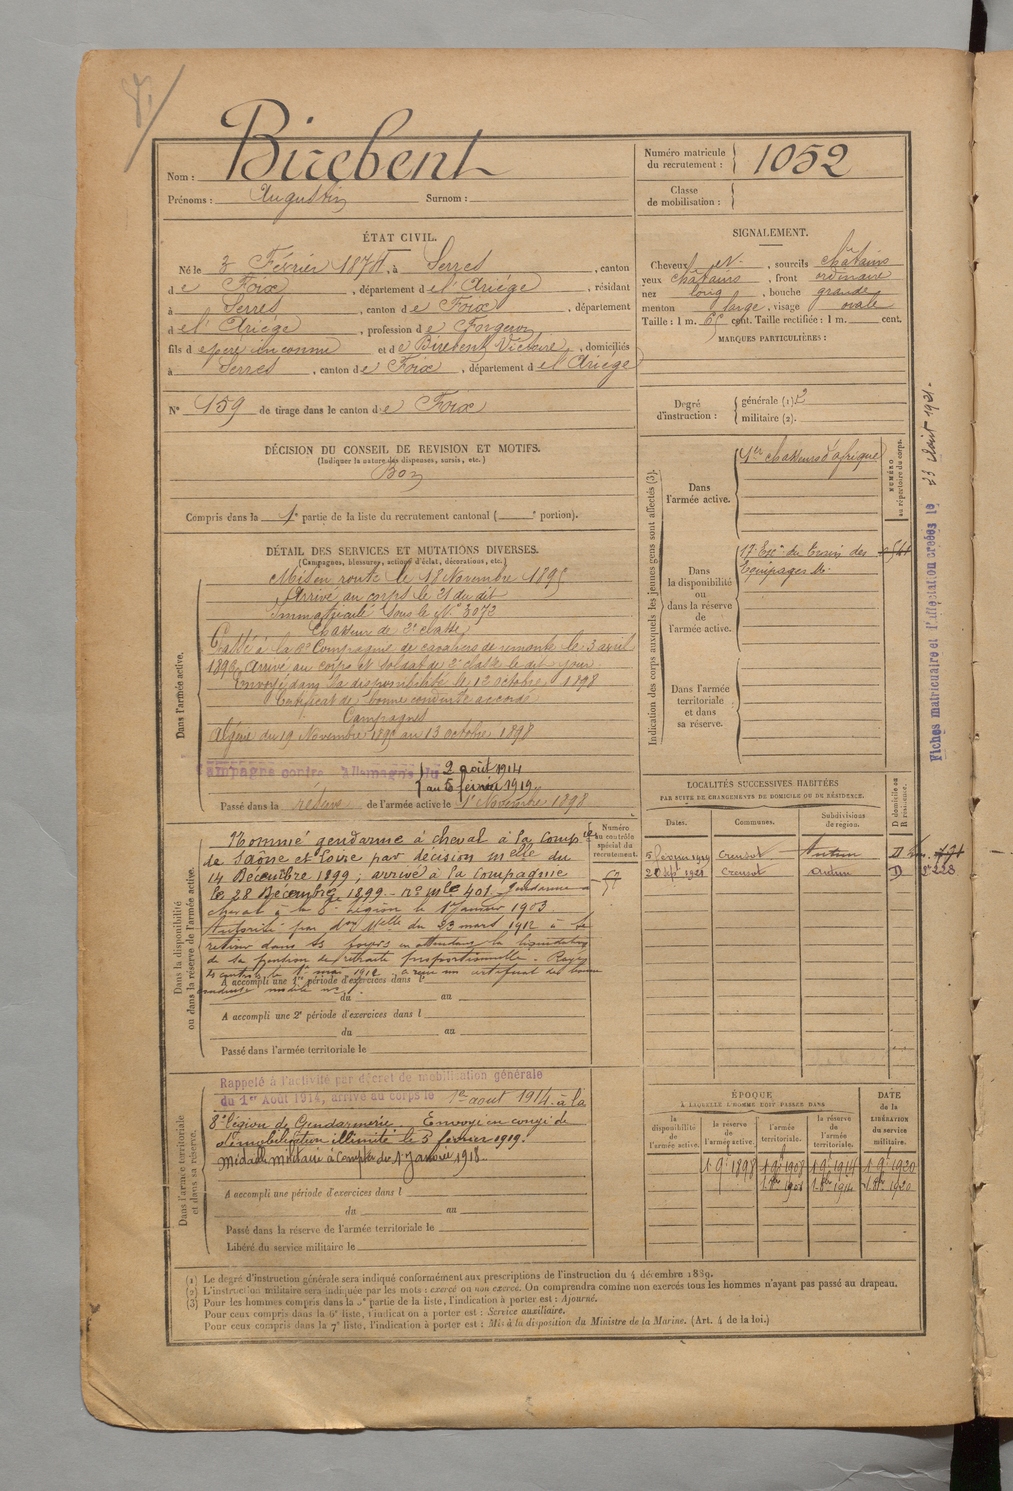 Nom : Birebent
Prénoms : Augustin Surnom :
Numéro matricule du recrutement : 1052
Classe de mobilisation :
ÉTAT CIVIL.
Né le 3 Février 1874, à Serres, canton
de Foix, département de l'Ariège, résidant
à Serres, canton de Foix, département
de l'Ariège, profession de Forgeron
fils de père inconnu et de Birebent Victoire, domiciliés
à Serres, canton de Foix, département de l'Ariège
N° 159 de tirage dans le canton de Foix
SIGNALEMENT.
Cheveux et, sourcils châtains
yeux châtains, front ordinaire
nez long, bouche grande
menton large, visage ovale
Taille : 1 m. 65 cent. Taille rectifiée : 1 m. cent.
MARQUES PARTICULIÈRES :
Degré d'instruction : générale (1) 2
militaire (2).
DÉCISION DU CONSEIL DE REVISION ET MOTIFS.
(Indiquer la nature des dispenses, sursis, etc.)
Bon
Compris dans la 1e partie de la liste du recrutement cantonal ( e portion).
DÉTAIL DES SERVICES ET MUTATIONS DIVERSES.
(Campagnes, blessures, actions d'éclat, décorations, etc.)
Dans l'armée active.
Mis en route le 18 Novembre 1895
Arrivé au corps le 21 du dit
Immatriculé sous le N° 3073
Chasseur de 2e classe
Passé à la 8e Compagnie de cavaliers de remonte le 3 avril
1896, arrivé au corps et soldat de 2e classe le dit jour.
Envoyé dans la disponibilité le 13 octobre 1898
Certificat de bonne conduite accordé
Campagnes
Algérie du 19 Novembre 1895 au 13 octobre 1898
Campagne contre l'Allemagne du 2 août 1914
au 5 février 1919
Passé dans la réserve de l'armée active le 1er Novembre 1898
Indication des corps auxquels les jeunes gens sont affectés (3).
Dans l'armée active.
1er chasseurs d'afrique
NUMÉRO au répertoire du corps.
Dans la disponibilité ou dans la réserve de l'armée active.
17e Eson du train des
Equipages Mres
Dans l'armée territoriale et dans sa réserve.
Fiches matriculaire et d'affectation créées le 23 Août 1921.
Dans la disponibilité ou dans la réserve de l'armée active.
Nommé gendarme à cheval à la Comp ie
de Saône et Loire par décision mlle du
14 Décembre 1899, arrivé à la compagnie
le 28 Décembre 1899 - n° mle 401 - Gendarme à
cheval à la 8e Légion le 1er Janvier 1903
Autorisé par don Mlle du 23 mars 1912 à se
retirer dans ses foyers en attendant la liquidation
de sa pension de retraite proportionnelle. Rayé
des contrôles le 1er mai 1912, a reçu un certificat de bonne
conduite modèle n° 1.
A accompli une 1re période d'exercices dans l
du au
A accompli une 2e période d'exercices dans l
du au
Passé dans l'armée territoriale le
Numéro au contrôle spécial du recrutement.
57
LOCALITÉS SUCCESSIVES HABITÉES
PAR SUITE DE CHANGEMENTS DE DOMICILE OU DE RÉSIDENCE.
Dates. Communes. Subdivisions de région. D domicile ou R résidence.
5 février 1919 Creusot Autun D
28 Sept 1921 Creusot Autun D
Dans l'armée territoriale et dans sa réserve.
Rappelé à l'activité par décret de mobilisation générale
du 1er Août 1914, arrivé au corps le 1er aout 1914 à la
8e légion de Gendarmerie. Envoyé en congé de
démobilisation illimité le 5 février 1919.
Médaille militaire à compter du 1er Janvier 1918
A accompli une période d'exercices dans l
du au
Passé dans la réserve de l'armée territoriale le
Libéré du service militaire le
ÉPOQUE
À LAQUELLE L'HOMME DOIT PASSER DANS
la disponibilité de l'armée active. la réserve de l'armée active. l'armée territoriale. la réserve de l'armée territoriale.
DATE de la LIBÉRATION du service militaire.
1 9e 1898 1 9e 1908 1 9e 1914 1 9e 1920
(1) Le degré d'instruction générale sera indiqué conformément aux prescriptions de l'instruction du 4 décembre 1889.
(2) L'instruction militaire sera indiquée par les mots : exercé ou non exercé. On comprendra comme non exercés tous les hommes n'ayant pas passé au drapeau.
(3) Pour les hommes compris dans la 5e partie de la liste, l'indication à porter est : Ajourné.
Pour ceux compris dans la 6e liste, l'indication à porter est : Service auxiliaire.
Pour ceux compris dans la 7e liste, l'indication à porter est : Mis à la disposition du Ministre de la Marine. (Art. 4 de la loi.)